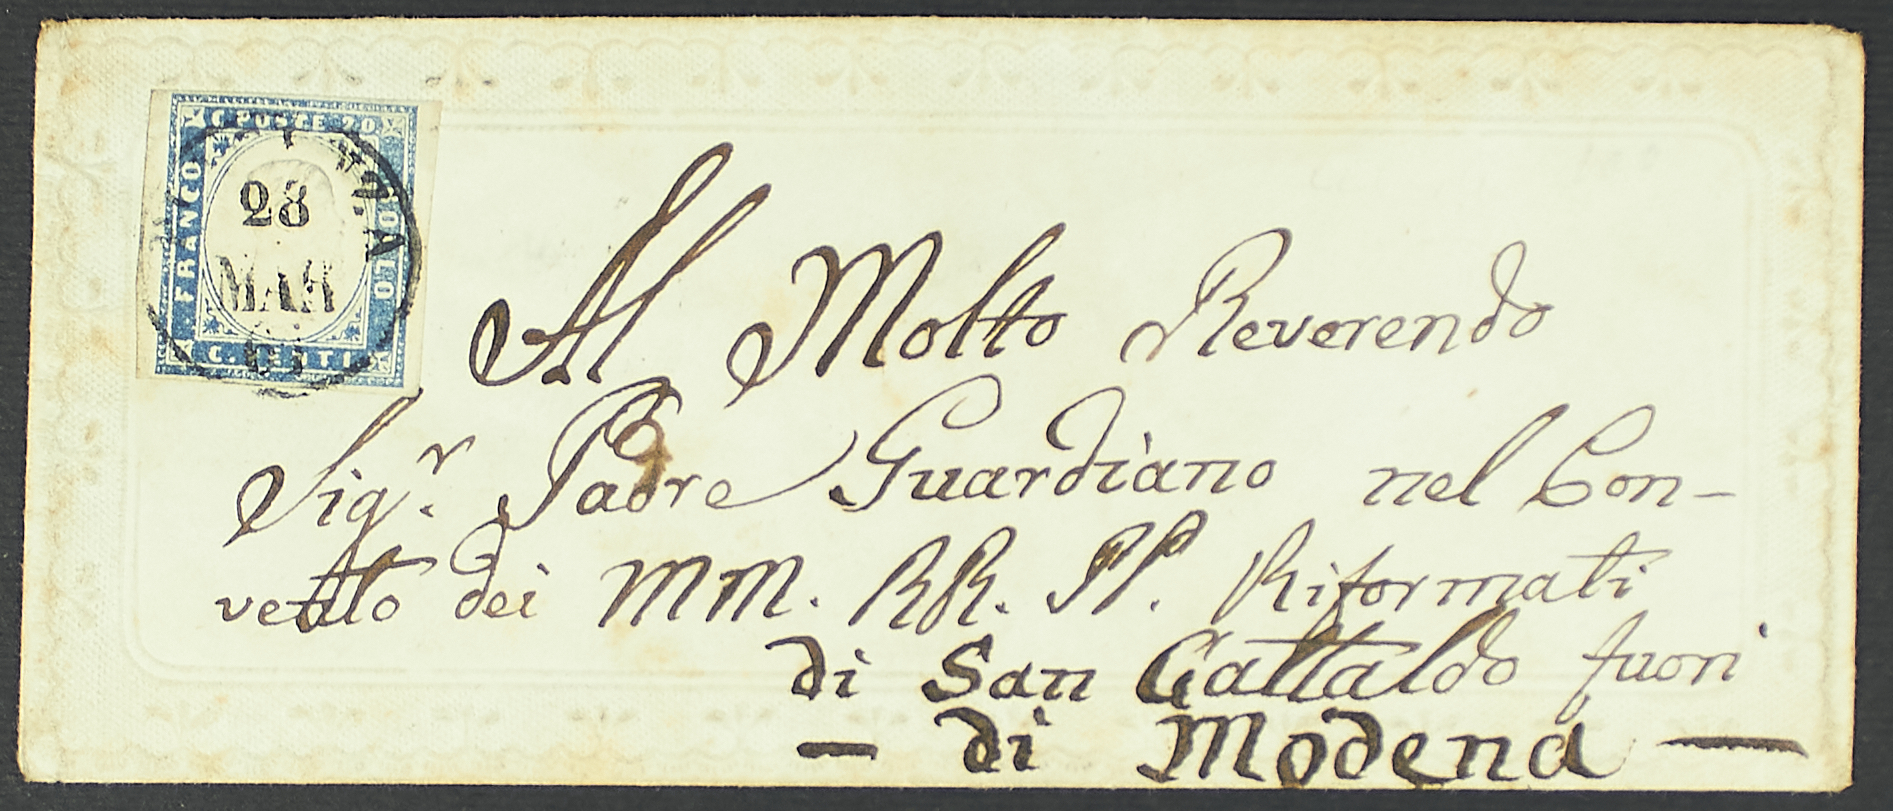 C POSTE 20
FRANCO
BOLLO
C. VENTI
23
MAR
61
Al Molto Reverendo
Sig.r Padre Guardiano nel Con-
vento dei MM. RR. PP. Riformati
di San Cattaldo fuori
— di Modena —